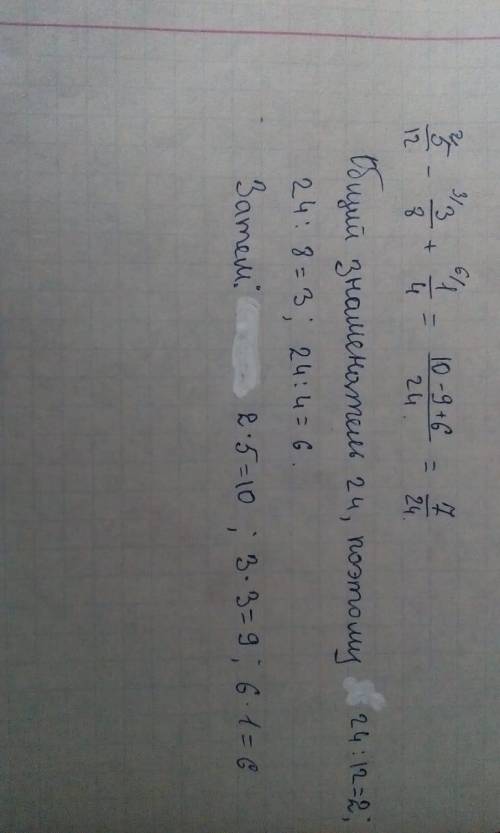 ²⁄5/12 - ³⁄3/8 + ⁶⁄1/4 = 10-9+6/24. = 7/24.
Общий знаменатель 24, поэтому 24:12=2;
24:8=3; 24:4=6.
Затем: 2·5=10; 3·3=9; 6·1=6